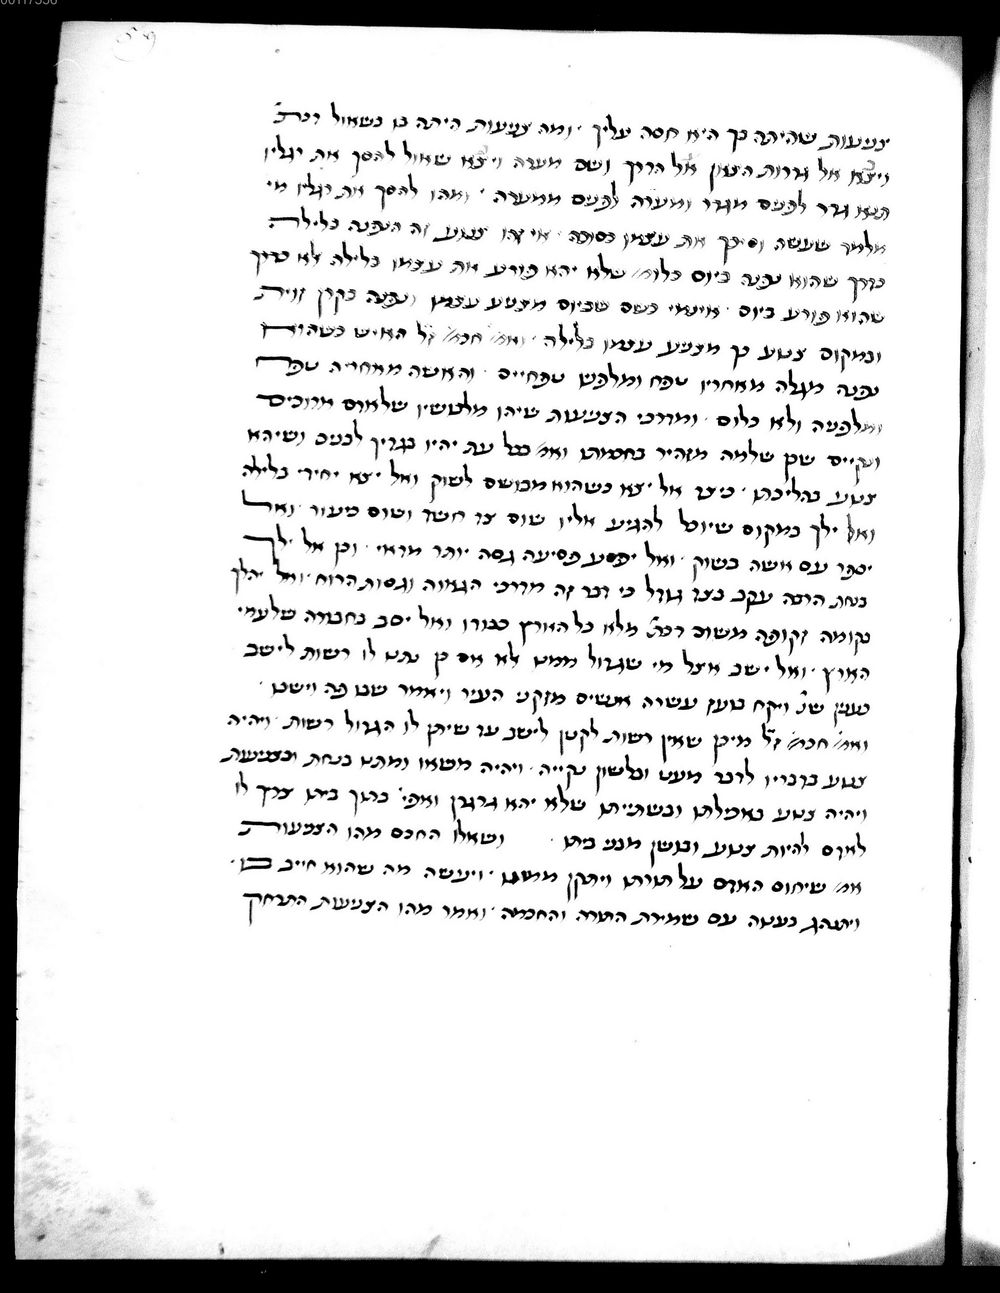 צניעות שהיתה בך היא חסה עליך ׳ ומה צניעות היתה בו בשאול דכת׳
ויצא אל גדרות הצאן אל הדרך ושם מערה ויצא שאול להסך את רגליו
תנא גדר לפנים מגדר ומערה לפנים ממערה ׳ ומהו להסך את רגליו מי
מלמד שעשה וסיכך את עצמו כסוכה ׳ אי זהו צנוע זה הנפנה בלילה
כדרך שהוא נפנה ביום כלומ׳ שלא יהא פורע את עצמו בלילה לא כדרך
שהוא פורע ביום ׳ אינמי כשם שביום מצניע עצמו ונפנה בקרן זוית
ובמקום צנוע כך מצניע עצמו בלילה ׳ ואמ׳ חכמ׳ ז׳ל האיש כשהוא
נפנה מגלה מאחריו טפח ומלפניו טפחיים ׳ והאשה מאחריה טפח
ומלפניה ולא כלום ׳ ומדרכי הצניעות שיהו מלבושיו שלאדם ארוכים
ונקיים שכן שלמה מזהיר בחכמתו ואמ׳ בכל עת יהיו בגדיך לבנים ושיהא
צנוע בהליכתו ׳ כיצד אל יצא כשהוא מבושם לשוק ואל יצא יחידי בלילה
ואל ילך במקום שיוכל להגיע אליו שום צד חשד ושום כיעור ׳ ואל
יספר עם אשה בשוק ׳ ואל יפסע פסיעה גסה יותר מדאי ׳ וכן אל ילך
בנחת הרבה עקב בצד גודל כי דבר זה מדרכי הגאוה וגסות הרוח ׳ ואל יהלך
בקומה זקופה משום דכת׳ מלא כל הארץ כבודו ואל יסב בחבורה שלעמי
הארץ ׳ ואל ישב אצל מי שגדול ממנו לא אם כן נתנו לו רשות לישב
כענין שנ׳ ויקח בועז עשרה אנשים מזקני העיר ויאמר שבו פה וישבו ׳
ואמ׳ חכמ׳ ז׳ל מיכן שאין רשות לקטן לישב עד שיתן לו הגדול רשות ׳ ויהיה
צנוע בדבריו לדבר מעט ובלשון נקייה ׳ ויהיה משאו ומתנו בנחת ובצניעות
ויהיה צנוע באכילתו ובשתייתו שלא יהא גרגרן ואפי׳ בתוך ביתו צריך לו
לאדם להיות צנוע וביישן מבני ביתו ׳ ושאלו החכם מהו הצניעות
אמ׳ שיחוס האדם על תורתו ויתקן ממונו ׳ ויעשה מה שהוא חייב בו ׳
ויתנהג בענוה עם שמירת התורה והחכמה ׳ ואמר מהו הצניעות התרחק